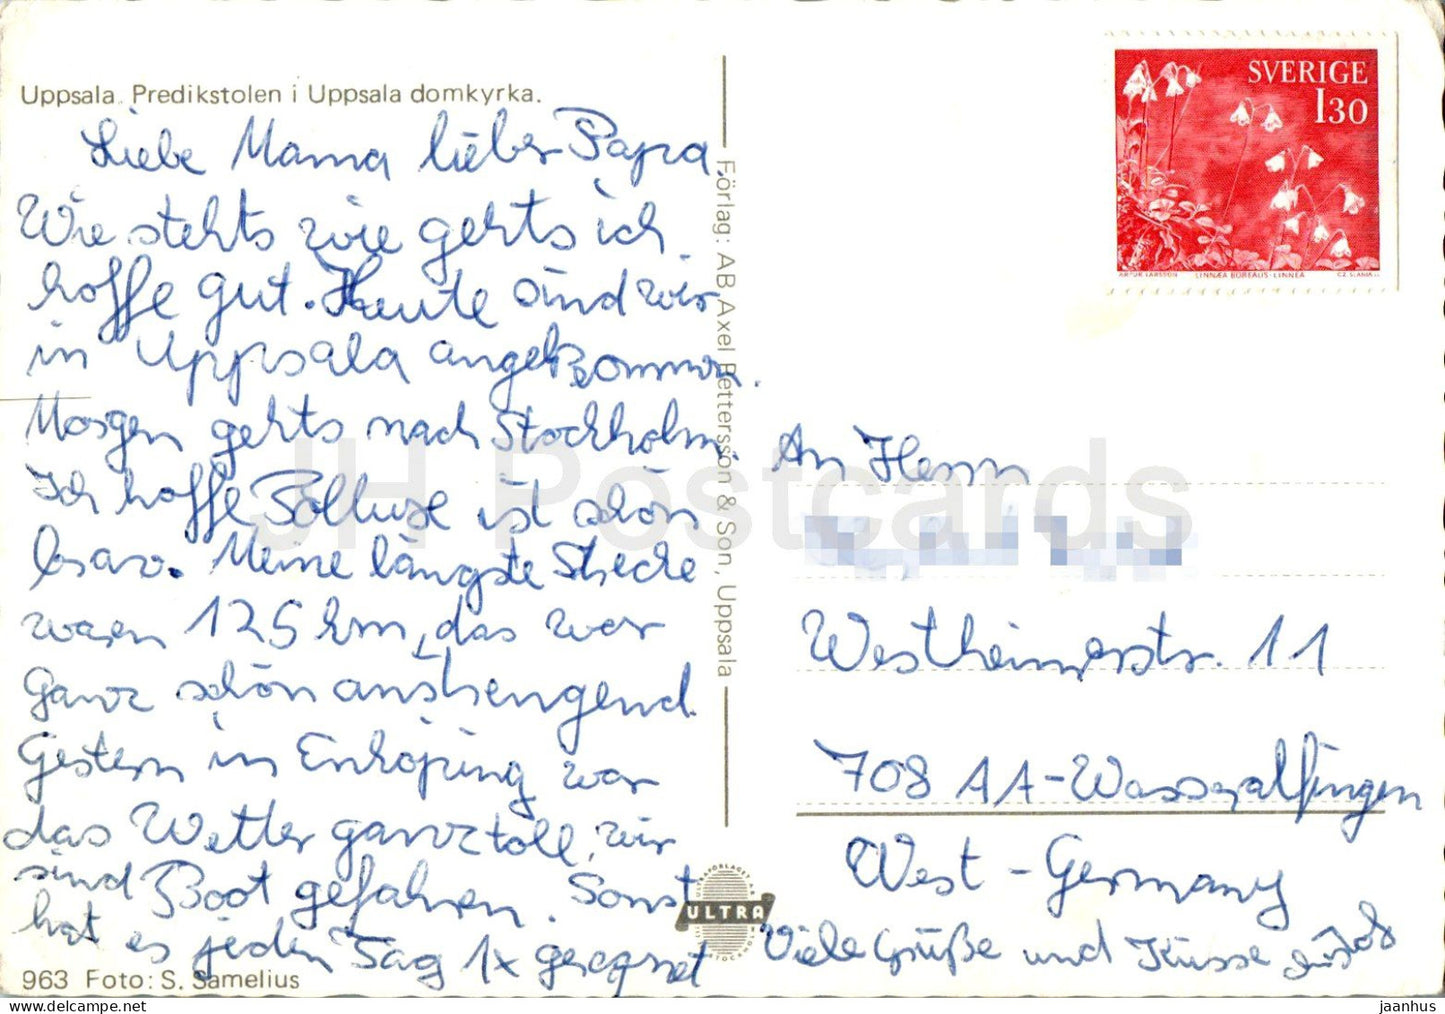 Uppsala. Predikstolen i Uppsala domkyrka.
Liebe Mama lieber Papa.
Wie stehts wie gehts ich
hoffe gut. Heute sind wir
in Uppsala angekommen.
Morgen gehts nach Stockholm.
Ich hoffe ist schön
brav. Meine längste Strecke
waren 125 km, das war
ganz schön anstrengend.
Gestern in Enköping war
das Wetter ganz toll, wir
sind Boot gefahren. Sonst
hat es jeden Tag 1x geregnet
963 Foto: S. Samelius
Förlag: AB Axel Pettersson & Son, Uppsala
ULTRA
SVERIGE
130
ARTUR LARSSON LINNÆA BOREALIS·LINNEA CZ. SLANIA
An Herrn
Westheimerstr. 11
708 AA-Wasseralfingen
West-Germany
Viele Grüße und Küsse
JH Postcards
http://www.delcampe.net
jaanhus